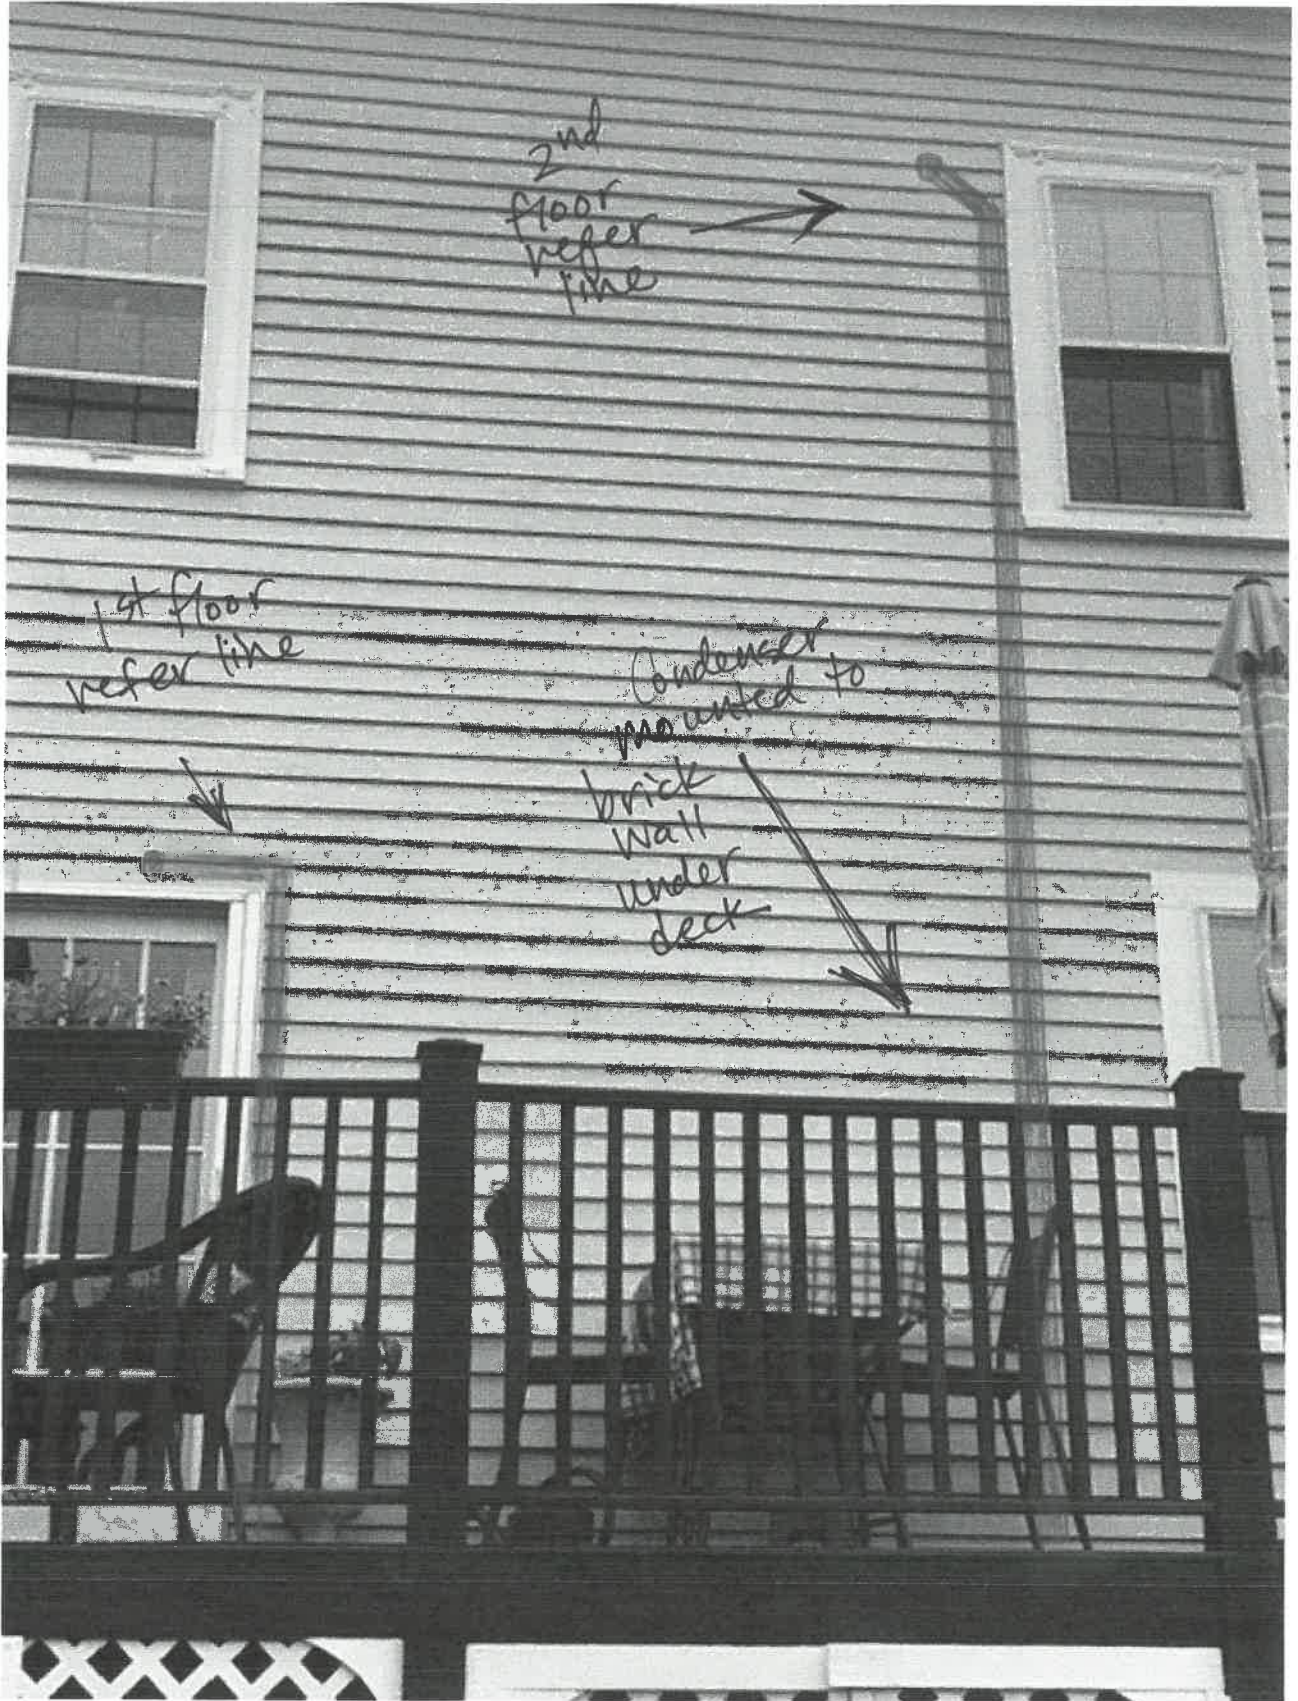 2nd
floor
refer
line
1st floor
refer line
Condenser
mounted to
brick
wall
under
deck